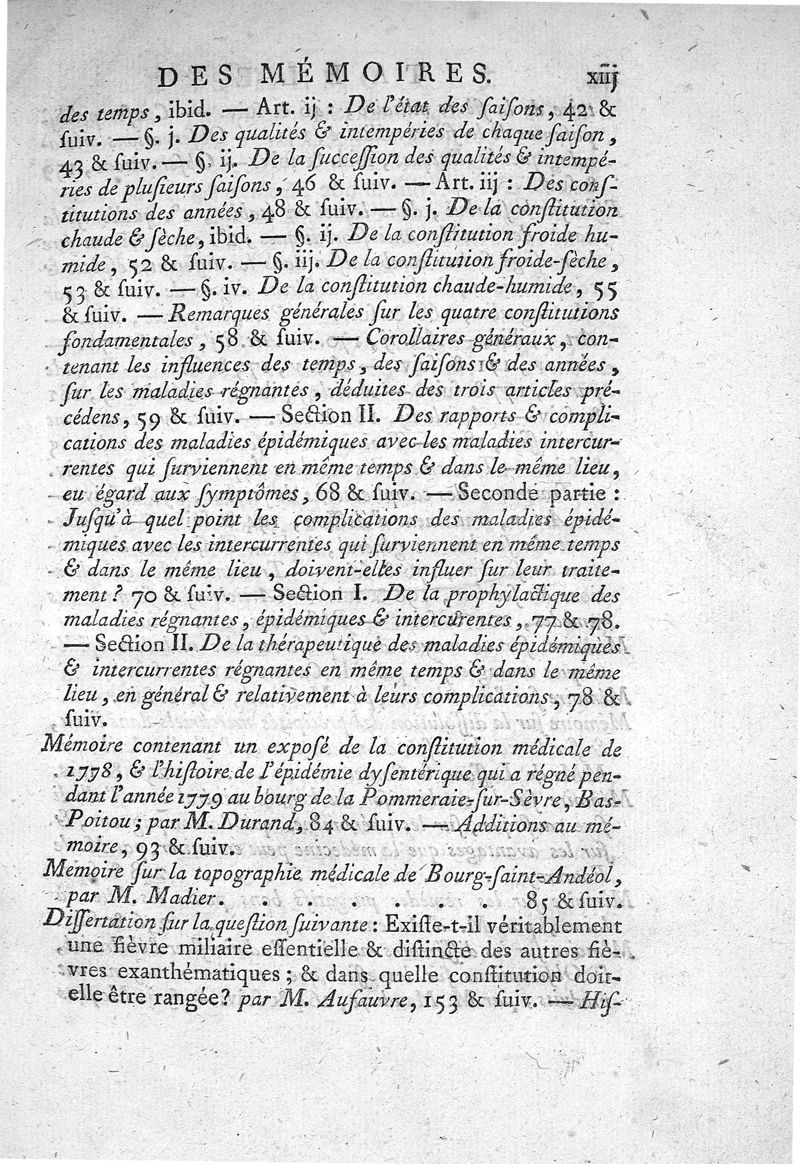 DES MÉMOIRES. xiij
des temps, ibid. — Art. ij : De l'état des ſaiſons, 42 &
ſuiv. — §. j. Des qualités & intempéries de chaque ſaiſon,
43 & ſuiv. — §. ij. De la ſucceſſion des qualités & intempé-
ries de pluſieurs ſaiſons, 46 & ſuiv. — Art. iij : Des conſ-
titutions des années, 48 & ſuiv. — §. j. De la conſtitution
chaude & ſèche, ibid. — §. ij. De la conſtitution froide hu-
mide, 52 & ſuiv. — §. iij. De la conſtitution froide-ſèche,
53 & ſuiv. — §. iv. De la conſtitution chaude-humide, 55
& ſuiv. — Remarques générales ſur les quatre conſtitutions
fondamentales, 58 & ſuiv. — Corollaires généraux, con-
tenant les influences des temps, des ſaiſons & des années,
ſur les maladies régnantes, déduites des trois articles pré-
cédens, 59 & ſuiv. — Section II. Des rapports & compli-
cations des maladies épidémiques avec les maladies intercur-
rentes qui ſurviennent en même temps & dans le même lieu,
eu égard aux ſymptômes, 68 & ſuiv. — Seconde partie :
Juſqu'à quel point les complications des maladies épidé-
miques avec les intercurrentes qui ſurviennent en même temps
& dans le même lieu, doivent-elles influer ſur leur traite-
ment ? 70 & ſuiv. — Section I. De la prophylactique des
maladies régnantes, épidémiques & intercurentes, 77 & 78.
— Section II. De la thérapeutique des maladies épidémiques
& intercurrentes régnantes en même temps & dans le même
lieu, en général & relativement à leurs complications, 78 &
ſuiv.
Mémoire contenant un expoſé de la conſtitution médicale de
1778, & l'hiſtoire de l'épidémie dyſentérique qui a régné pen-
dant l'année 1779 au bourg de la Pommeraie-ſur-Sèvre, Bas-
Poitou ; par M. Durand, 84 & ſuiv. — Additions au mé-
moire, 93 & ſuiv.
Memoire ſur la topographie médicale de Bourg-ſaint-Andéol,
par M. Madier. . . . . . 85 & ſuiv.
Diſſertation ſur la queſtion ſuivante : Exiſte-t-il véritablement
une fièvre miliaire eſſentielle & diſtincte des autres fiè-
vres exanthématiques ; & dans quelle conſtitution doit-
elle être rangée ? par M. Aufauvre, 153 & ſuiv. — Hiſ-